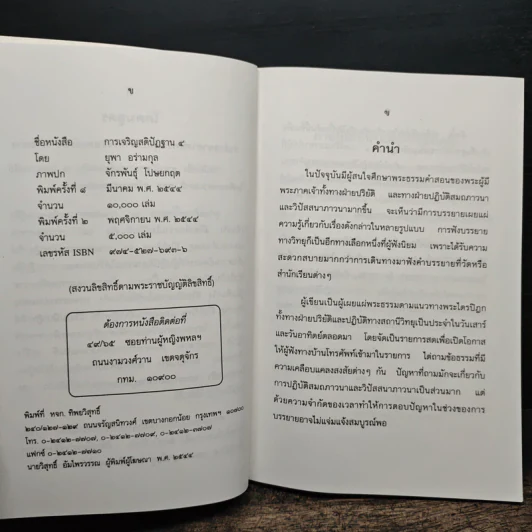 ข
ชื่อหนังสือ การเจริญสติปัฏฐาน ๔
โดย ยุพา อร่ามกุล
ภาพปก จักรพันธุ์ โปษยกฤต
พิมพ์ครั้งที่ ๑ มีนาคม พ.ศ. ๒๕๔๔
จำนวน ๑๐,๐๐๐ เล่ม
พิมพ์ครั้งที่ ๒ พฤศจิกายน พ.ศ. ๒๕๔๔
จำนวน ๕,๐๐๐ เล่ม
เลขรหัส ISBN ๙๗๔-๕๒๗-๖๙๓-๖
(สงวนลิขสิทธิ์ตามพระราชบัญญัติลิขสิทธิ์)
ต้องการหนังสือติดต่อที่
๔๙/๖๕ ซอยท่านผู้หญิงพหลฯ
ถนนงามวงศ์วาน เขตจตุจักร
กทม. ๑๐๙๐๐
พิมพ์ที่ หจก. ทิพยวิสุทธิ์
๒๔๐/๑๒๗-๑๒๙ ถนนจรัญสนิทวงศ์ เขตบางกอกน้อย กรุงเทพฯ ๑๐๗๐๐
โทร. ๐-๒๔๑๒-๗๗๐๗, ๐-๒๔๑๒-๗๗๐๙, ๐-๒๔๑๒-๗๗๐๘
แฟกซ์ ๐-๒๔๑๒-๗๗๑๐
นายวิสุทธิ์ อัมไพรวรรณ ผู้พิมพ์ผู้โฆษณา พ.ศ. ๒๕๔๔
ข
คำนำ
ในปัจจุบันมีผู้สนใจศึกษาพระธรรมคำสอนของพระผู้มี
พระภาคเจ้าทั้งทางฝ่ายปริยัติ และทางฝ่ายปฏิบัติสมถภาวนา
และวิปัสสนาภาวนามากขึ้น จะเห็นว่ามีการบรรยายเผยแผ่
ความรู้เกี่ยวกับเรื่องดังกล่าวในหลายรูปแบบ การฟังบรรยาย
ทางวิทยุก็เป็นอีกทางเลือกหนึ่งที่ผู้ฟังนิยม เพราะได้รับความ
สะดวกสบายมากกว่าการเดินทางมาฟังคำบรรยายที่วัดหรือ
สำนักเรียนต่างๆ
ผู้เขียนเป็นผู้เผยแผ่พระธรรมตามแนวทางพระไตรปิฎก
ทั้งทางฝ่ายปริยัติและปฏิบัติทางสถานีวิทยุเป็นประจำในวันเสาร์
และวันอาทิตย์ตลอดมา โดยจัดเป็นรายการสดเพื่อเปิดโอกาส
ให้ผู้ฟังทางบ้านโทรศัพท์เข้ามาในรายการ ไต่ถามข้อธรรมที่มี
ความเคลือบแคลงสงสัยต่างๆ กัน ปัญหาที่ถามมักจะเกี่ยวกับ
การปฏิบัติสมถภาวนาและวิปัสสนาภาวนาเป็นส่วนมาก แต่
ด้วยความจำกัดของเวลาทำให้การตอบปัญหาในช่วงของการ
บรรยายอาจไม่แจ่มแจ้งสมบูรณ์พอ